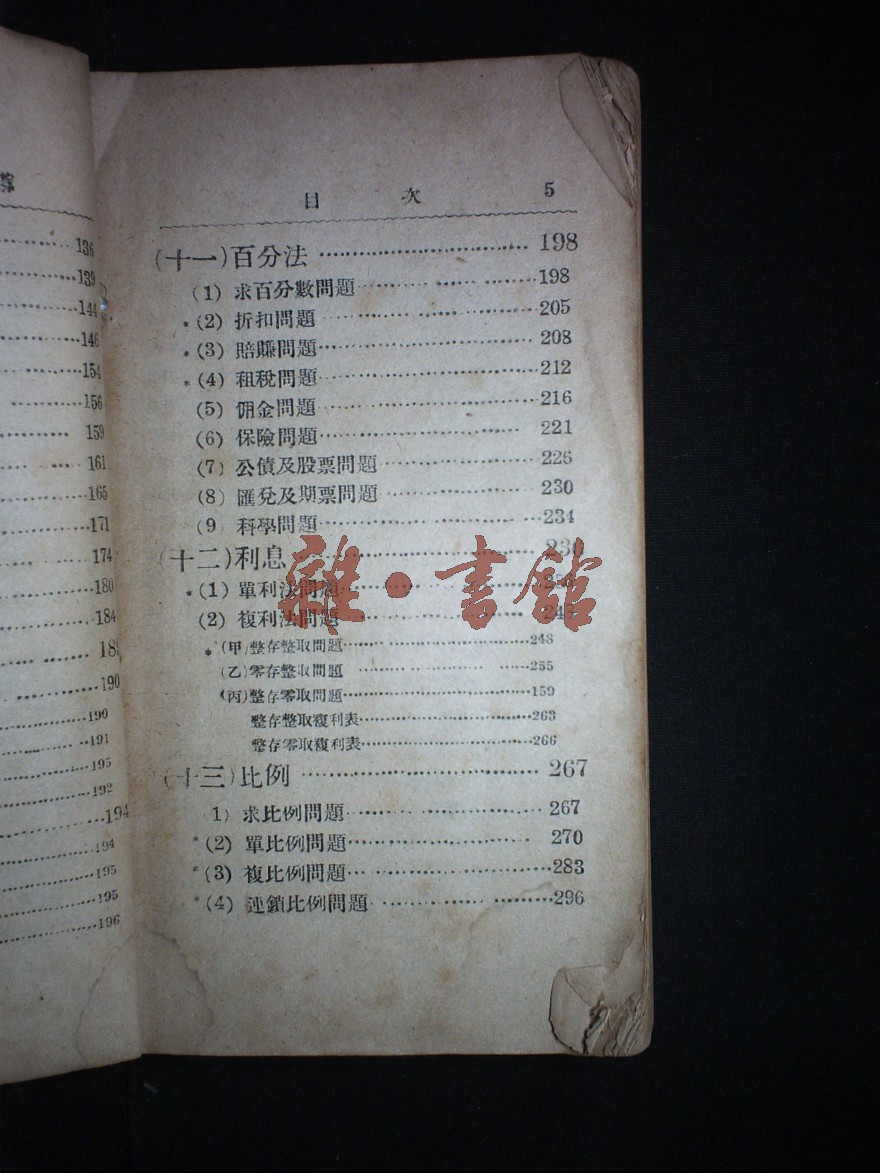 136
139
144
146
154
156
159
161
165
171
174
180
184
188
190
190
191
195
192
194
194
195
195
196
目 次 5
(十一)百分法 198
(1) 求百分數問題 198
*(2) 折扣問題 205
*(3) 賠賺問題 208
*(4) 租稅問題 212
(5) 佣金問題 216
(6) 保險問題 221
(7) 公債及股票問題 226
(8) 匯兌及期票問題 230
(9 科學問題 234
(十二)利息
*(1) 單利法問題
(2) 複利法問題
*(甲)整存整取問題 248
(乙)零存整取問題 255
(丙)整存零取問題 159
整存整取複利表 263
整存零取複利表 266
(十三)比例 267
1) 求比例問題 267
*(2) 單比例問題 270
*(3) 複比例問題 283
*(4) 連鎖比例問題 296
雜·書館